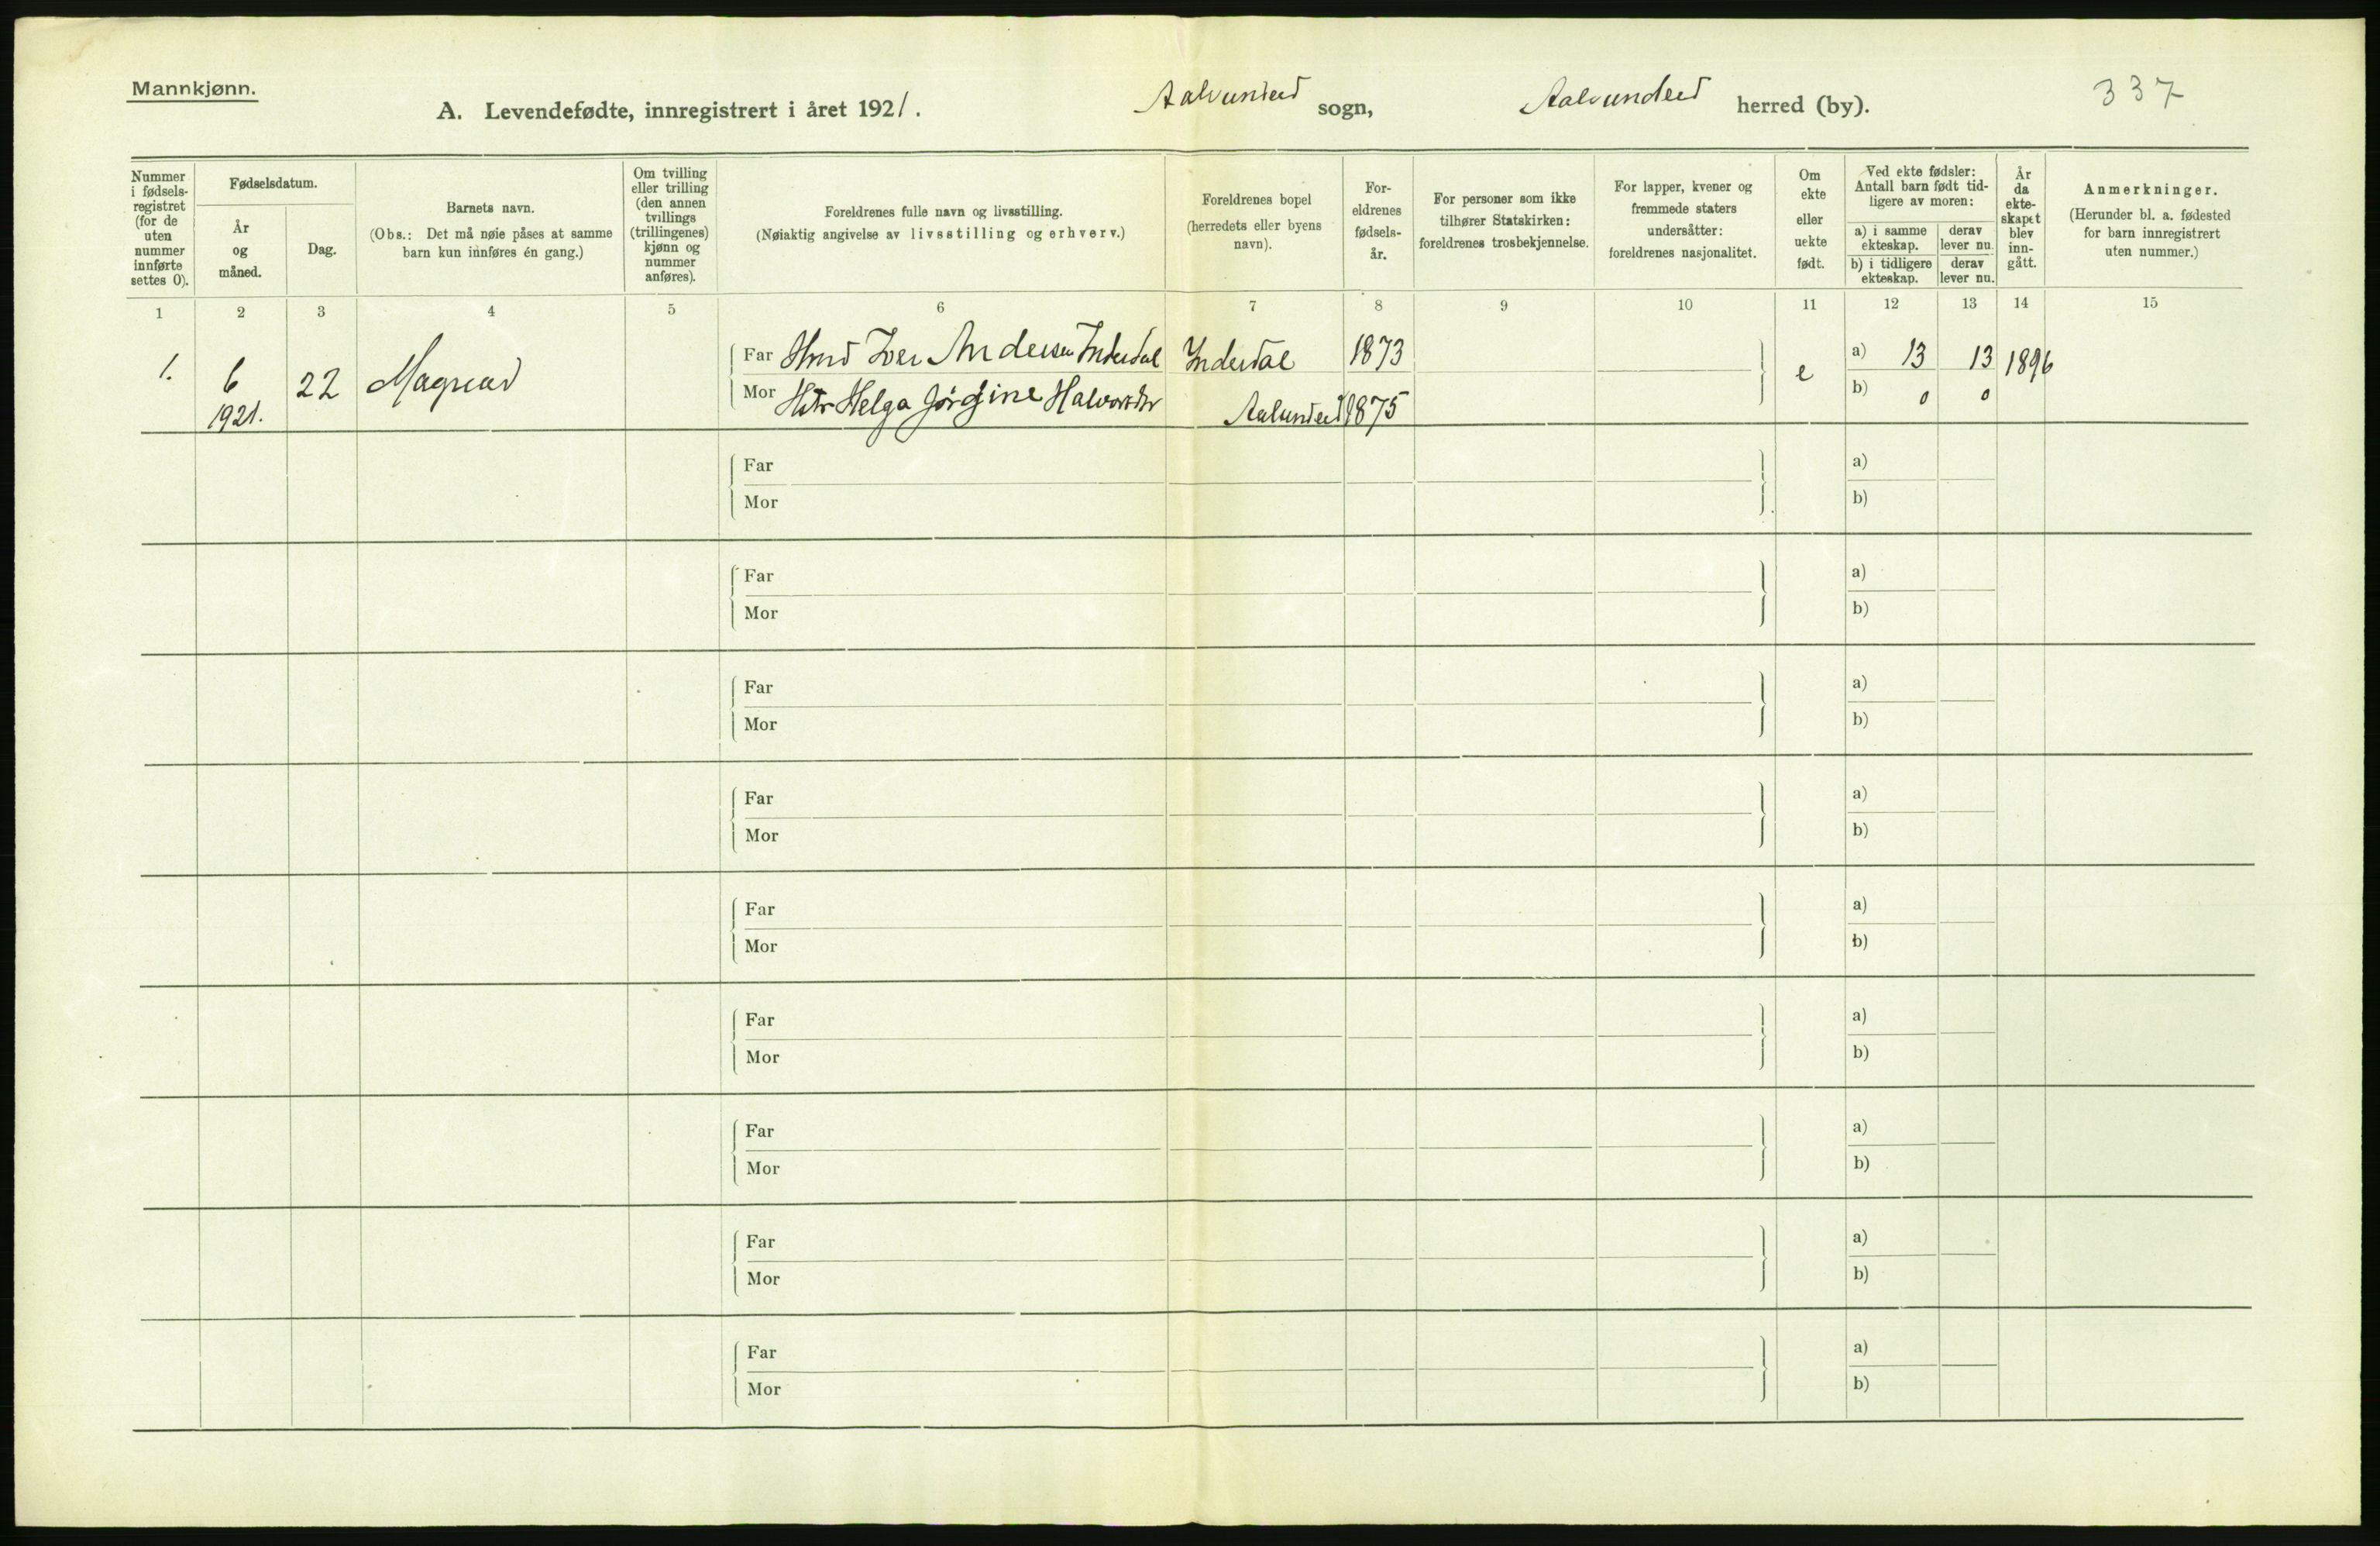 Mannkjønn.
A. Levendefødte, innregistrert i året 1921. Aalvundeid sogn, Aalvundeid herred (by). 337
Nummer i fødsels-registret (for de uten nummer innførte settes 0).
Fødselsdatum.
År og måned.
Dag.
Barnets navn.
(Obs.: Det må nøie påses at samme barn kun innføres én gang.)
Om tvilling eller trilling (den annen tvillings (trillingenes) kjønn og nummer anføres).
Foreldrenes fulle navn og livsstilling.
(Nøiaktig angivelse av livsstilling og erhverv.)
Foreldrenes bopel
(herredets eller byens navn).
For-eldrenes fødsels-år.
For personer som ikke tilhører Statskirken: foreldrenes trosbekjennelse.
For lapper, kvener og fremmede staters undersåtter: foreldrenes nasjonalitet.
Om ekte eller uekte født.
Ved ekte fødsler: Antall barn født tid-ligere av moren:
a) i samme ekteskap.
derav lever nu.
b) i tidligere ekteskap.
derav lever nu.
År da ekte-skapet blev inn-gått.
Anmerkninger.
(Herunder bl. a. fødested for barn innregistrert uten nummer.)
1 2 3 4 5 6 7 8 9 10 11 12 13 14 15
1. 6 22 Magnar Far Iver Andersen Inderdal Inderdal 1873 e a) 13 13 1896
1921. Mor Helga Jørgine Halvorsdtr Aalvundeid 1875 b) 0 0
Far a)
Mor b)
Far a)
Mor b)
Far a)
Mor b)
Far a)
Mor b)
Far a)
Mor b)
Far a)
Mor b)
Far a)
Mor b)
Far a)
Mor b)
Far a)
Mor b)